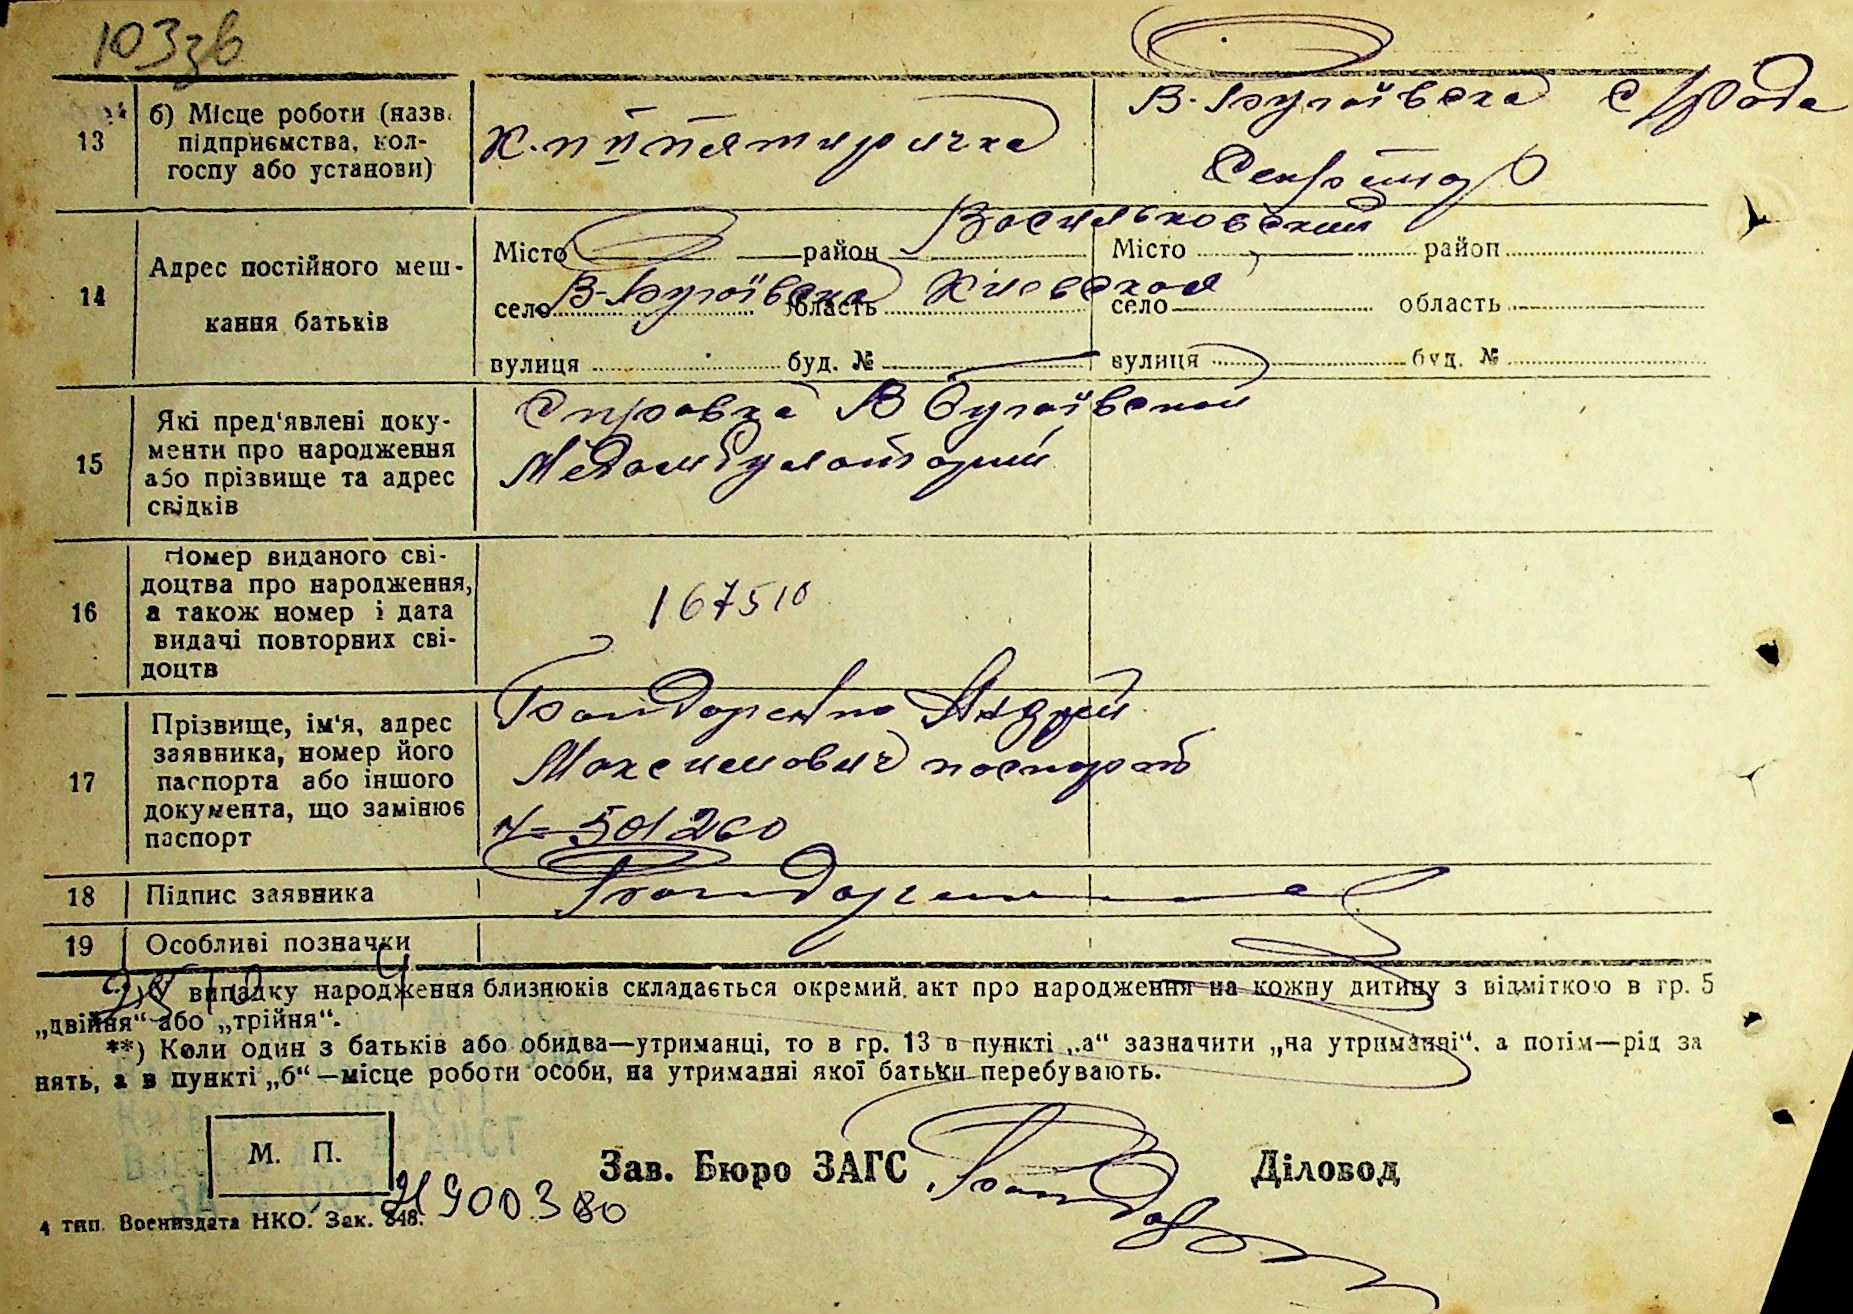 103зв
13
б) Місце роботи (назв.
підприємства, кол-
госпу або установи)
К. ІІ пятирічка
В-Бугаївска С/Рада
Секретар
14
Адрес постійного меш-
кання батьків
Місто район Васильковский
село В-Бугаївка область Киевская
вулиця буд. №
Місто район
село область
вулиця буд. №
15
Які пред'явлені доку-
менти про народження
або прізвище та адрес
свідків
Справка В Бугаївской
Медамбулаторий
16
Номер виданого сві-
доцтва про народження,
а також номер і дата
видачі повторних сві-
доцтв
167510
17
Прізвище, ім'я, адрес
заявника, номер його
паспорта або іншого
документа, що замінює
паспорт
Бондаренко Андрей
Максимович паспорт
501260
18
Підпис заявника
19
Особливі позначки
*) У випадку народження близнюків складається окремий акт про народження на кожну дитину з відміткою в гр. 5
„двійня“ або „трійня“.
**) Коли один з батьків або обидва—утриманці, то в гр. 13 в пункті „а“ зазначити „на утриманні“, а потім—рід за
нять, а в пункті „б“—місце роботи особи, на утриманні якої батьки перебувають.
М. П.
Зав. Бюро ЗАГС
Діловод
900380
4 тип. Воениздата НКО. Зак. 848.